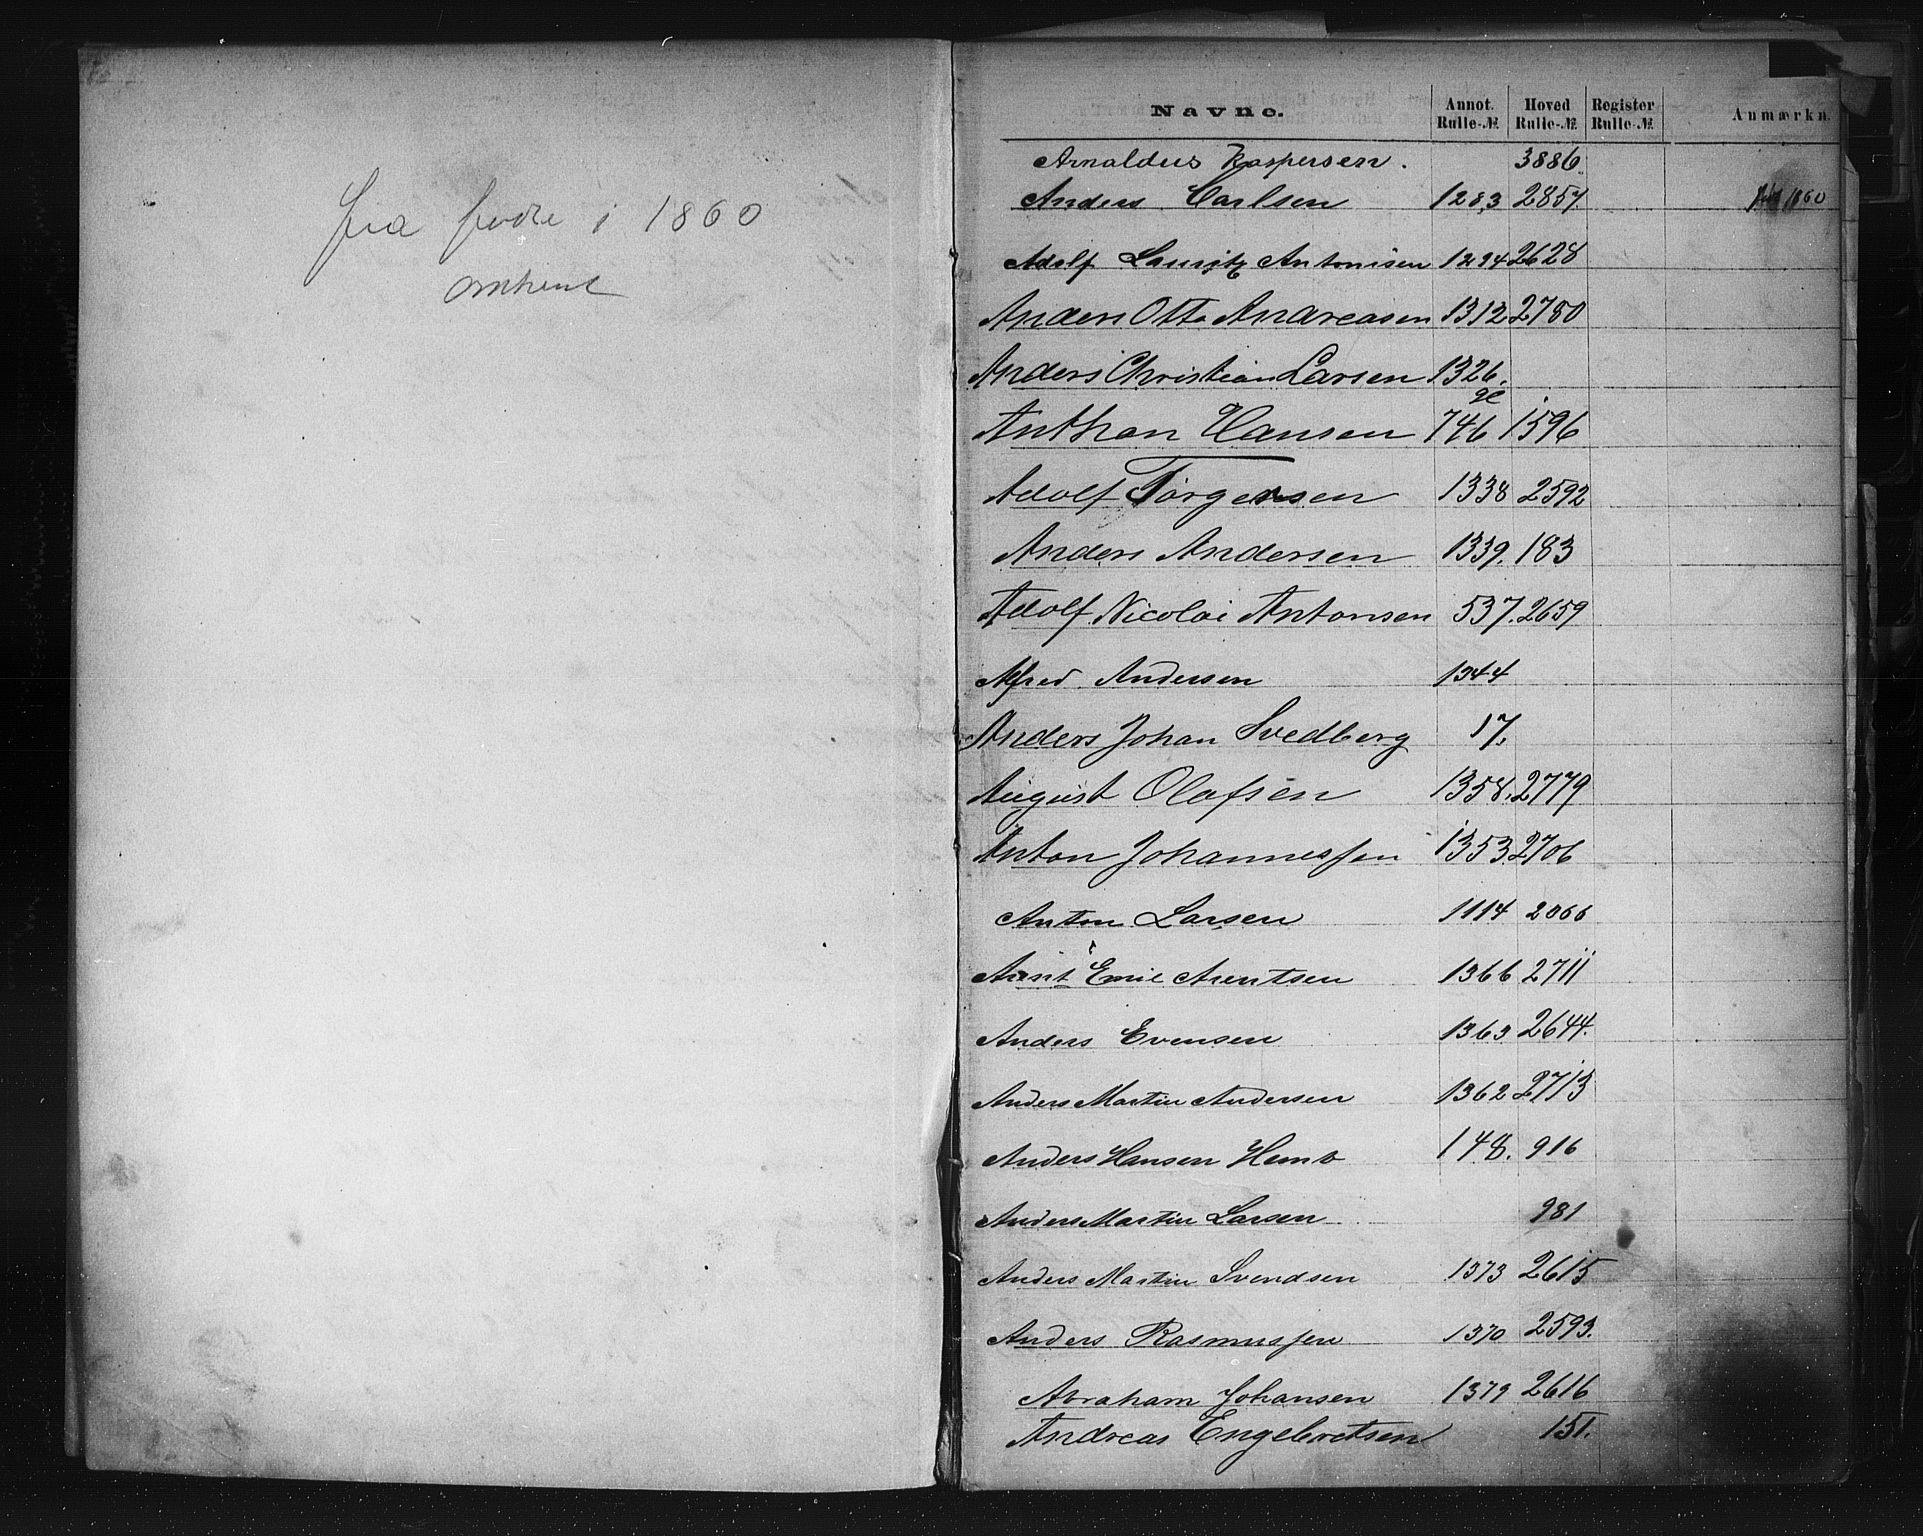 fra fødte i 1860
omtrent
Navne. Annot. Rulle-№ Hoved Rulle-№ Register Rulle-№ Anmærkn.
Arnaldus Kaspersen. 3886.
Anders Carlsen 1283 2857. 1860
Adolf Lauritz Antonisen 1294 2628
Anders Otto Andreasen 1312 2780
Anders Christian Larsen 1326.
Anthon Hansen 746 1596
Adolf Törgersen 1338 2592
Anders Andersen 1339. 183
Adolf Nicolai Antonsen 537. 2659
Alfred Andersen 1344
Anders Johan Svedberg 17.
August Olafsen 1358. 2779
Anton Johannessen 1353. 2706
Anton Larsen 1114 2066
Arent Emil Arentsen 1366 2711
Anders Evensen 1363 2644.
Anders Martin Andersen 1362 2713
Anders Hansen Hemb 148. 916
Anders Martin Larsen 981
Anders Martin Svendsen 1373 2615
Anders Rasmussen 1370 2593.
Abraham Johansen 1379 2616
Andreas Engebretsen 151.